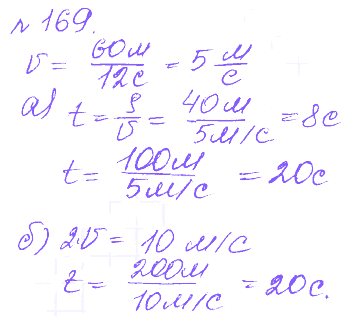 № 169.
v = 60м/12с = 5 м/с
а) t = S/v = 40м/5м/с = 8с
t = 100м/5м/с = 20с
б) 2·v = 10 м/с
t = 200м/10м/с = 20с.